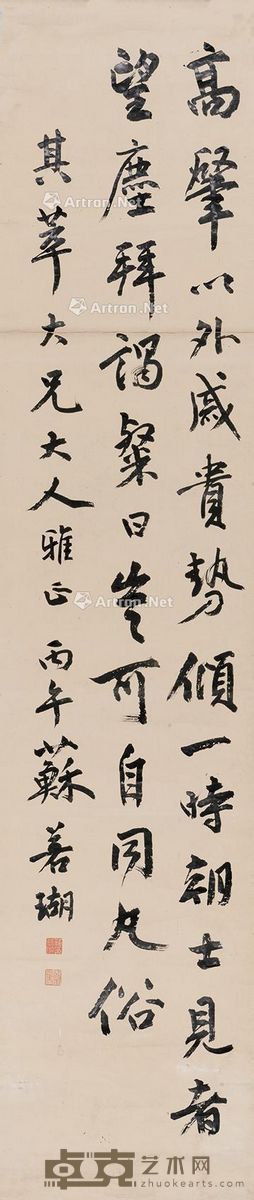 高肇以外戚貴勢傾一時朝士見者
望塵拜謁粲曰豈可自同凡俗
其萃大兄大人雅正 丙午蘇若瑚
Artron.Net
Artron.Net
Artron.Net
Artron.Net
卓克艺术网
zhuokearts.com